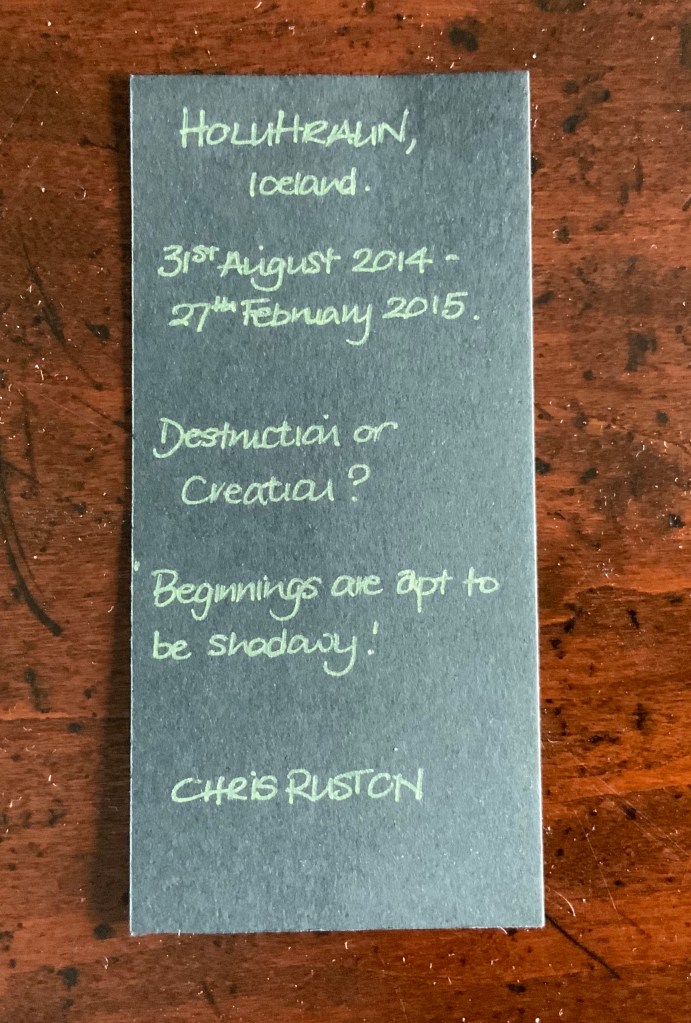 HOLUHRAUN,
Iceland.
31st August 2014 -
27th February 2015.
Destruction or
Creation?
'Beginnings are apt to
be shadowy!'
CHRIS RUSTON